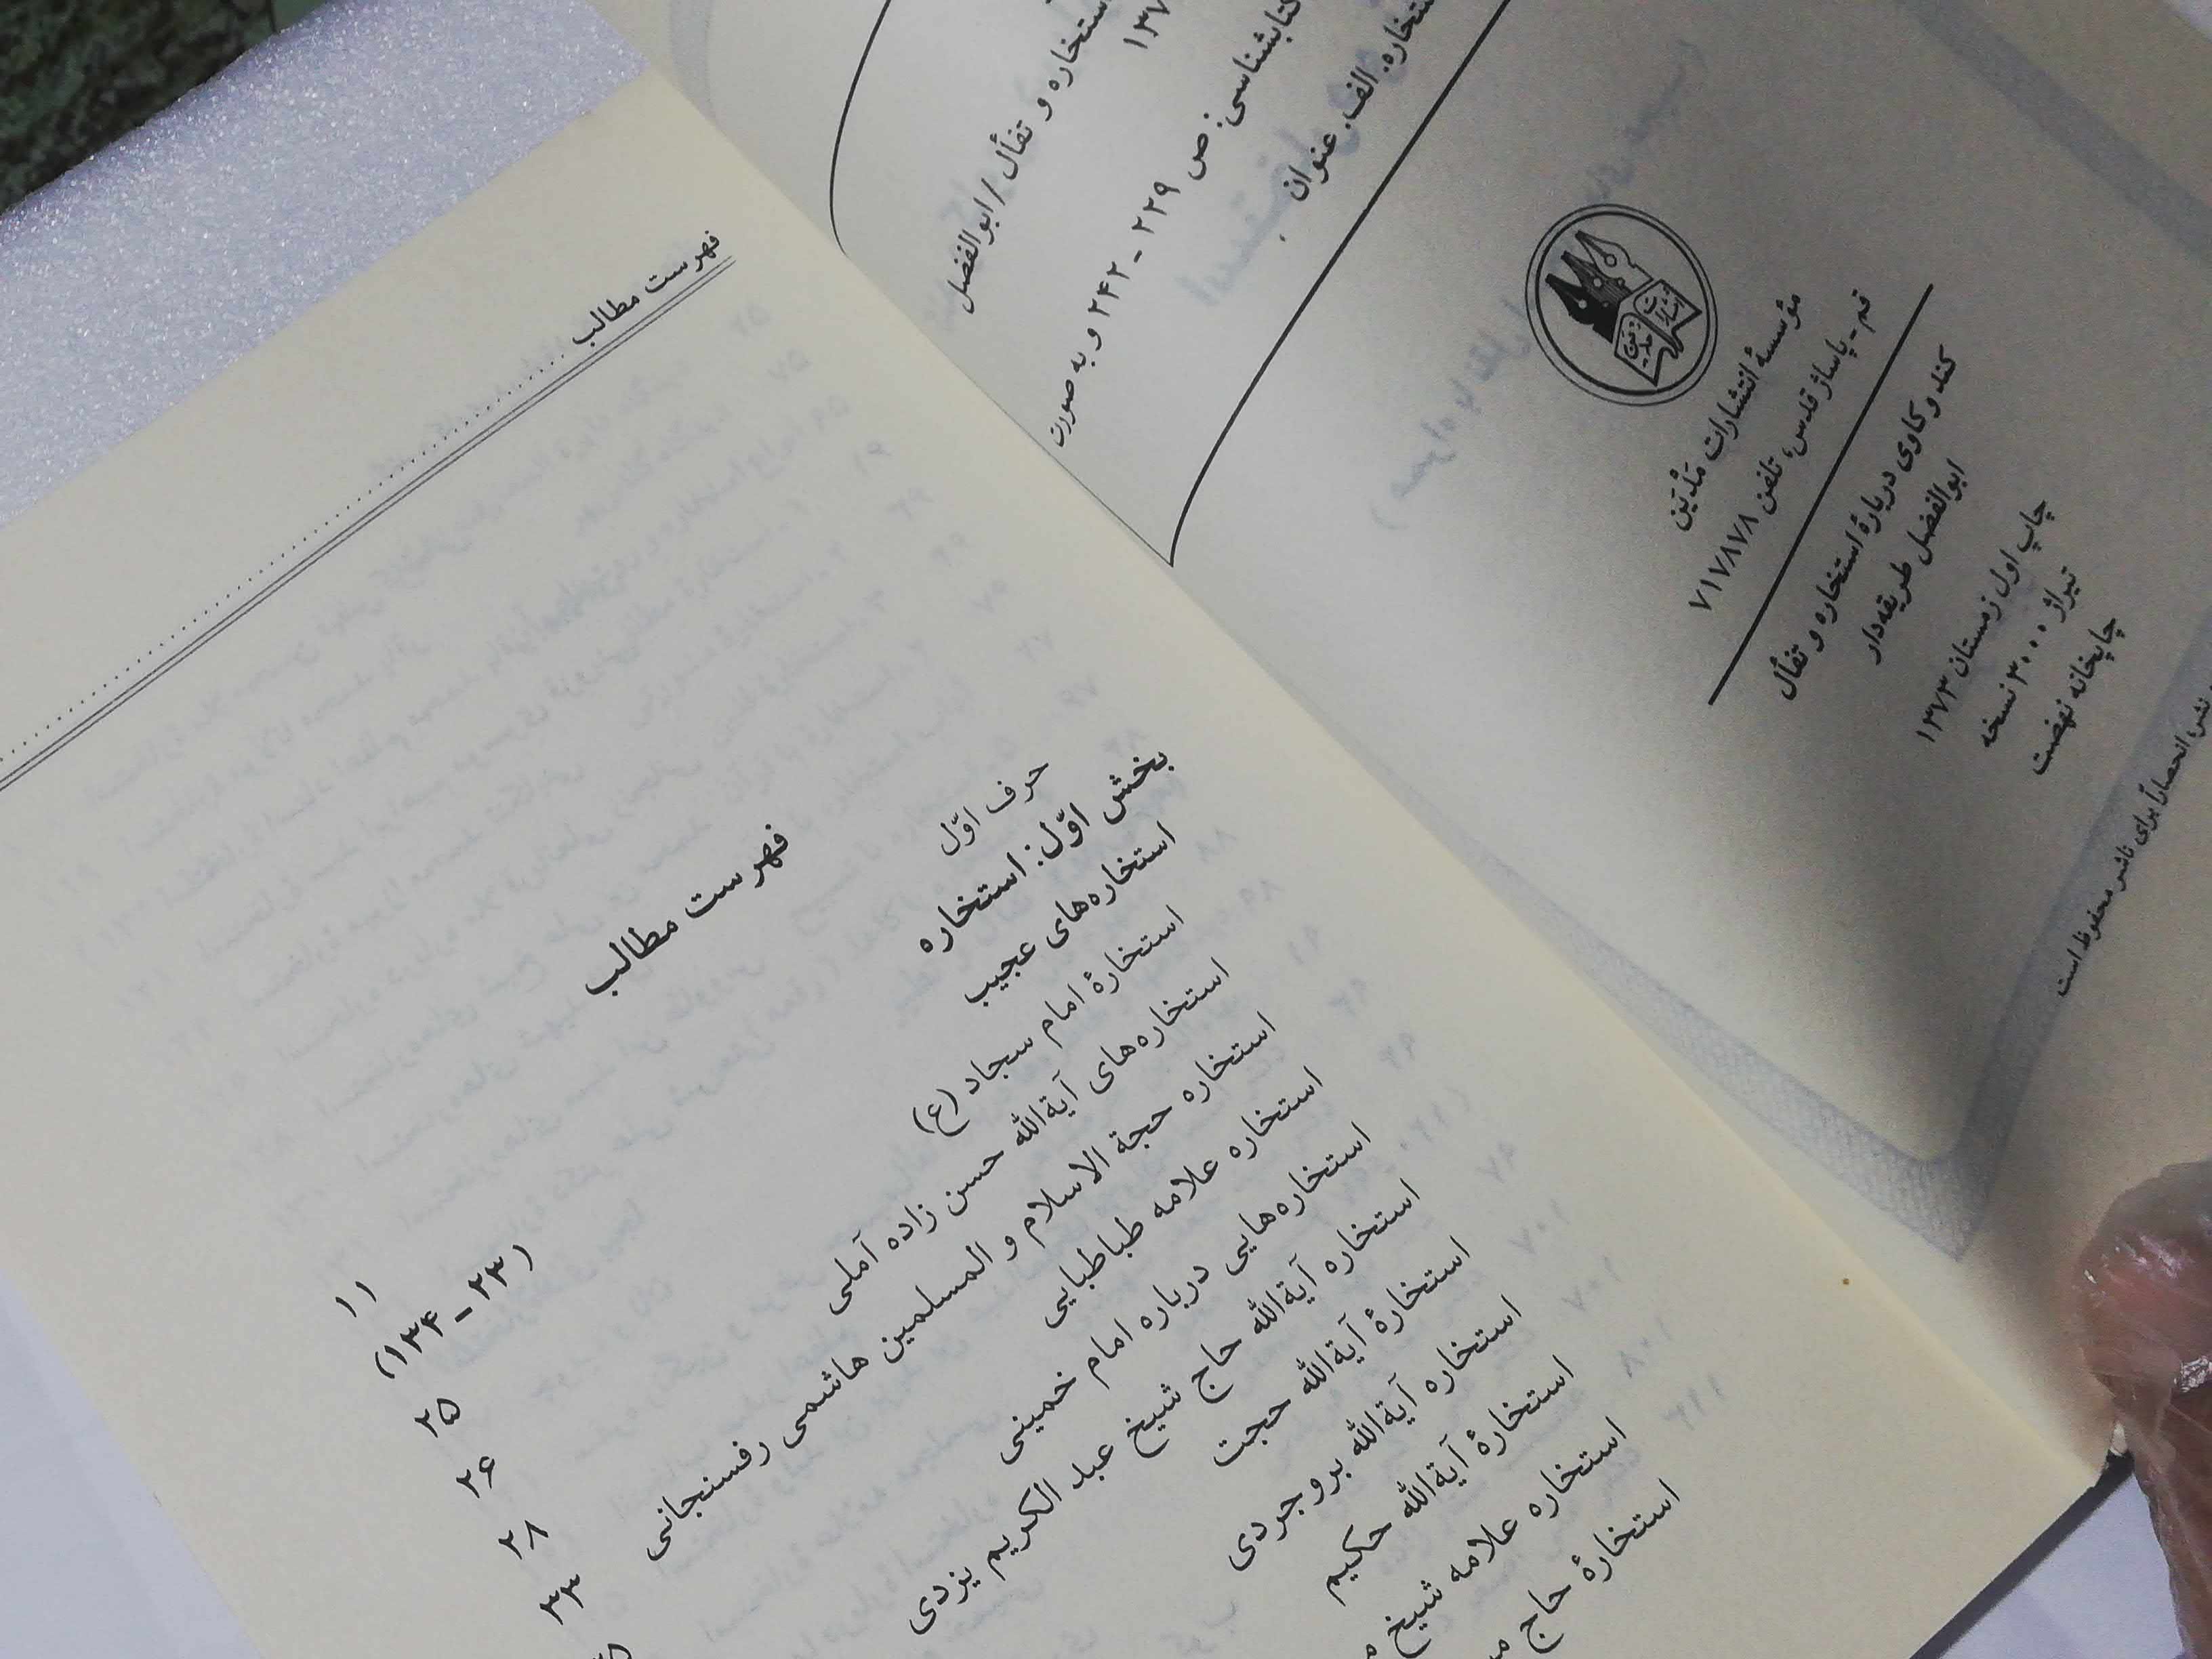 استخاره و تفأل / ابوالفضل
۱۳۷
کتابشناسی: ص ۲۲۹ - ۲۴۲ و به صورت
استخاره. الف. عنوان
مؤسسهٔ انتشارات مَدْیَن
قم - پاساژ قدس، تلفن ۷۱۷۸۷۸
کند و کاوی دربارهٔ استخاره و تفأل
ابوالفضل طریقه‌دار
چاپ اول زمستان ۱۳۷۳
تیراژ ۳۰۰۰ نسخه
چاپخانه نهضت
نشر، انحصاراً برای ناشر محفوظ است
فهرست مطالب
فهرست مطالب
حرف اوّل ۱۱
بخش اوّل: استخاره (۲۳ - ۱۳۴)
استخاره‌های عجیب ۲۵
استخارهٔ امام سجاد (ع) ۲۶
استخاره‌های آیةالله حسن زاده آملی ۲۸
استخاره حجة الاسلام و المسلمین هاشمی رفسنجانی ۳۳
استخاره علامه طباطبایی
استخاره‌هایی درباره امام خمینی
استخاره آیةالله حاج شیخ عبد الکریم یزدی
استخارهٔ آیةالله حجت
استخاره آیةالله بروجردی
استخارهٔ آیةالله حکیم
استخاره علامه شیخ
استخارهٔ حاج